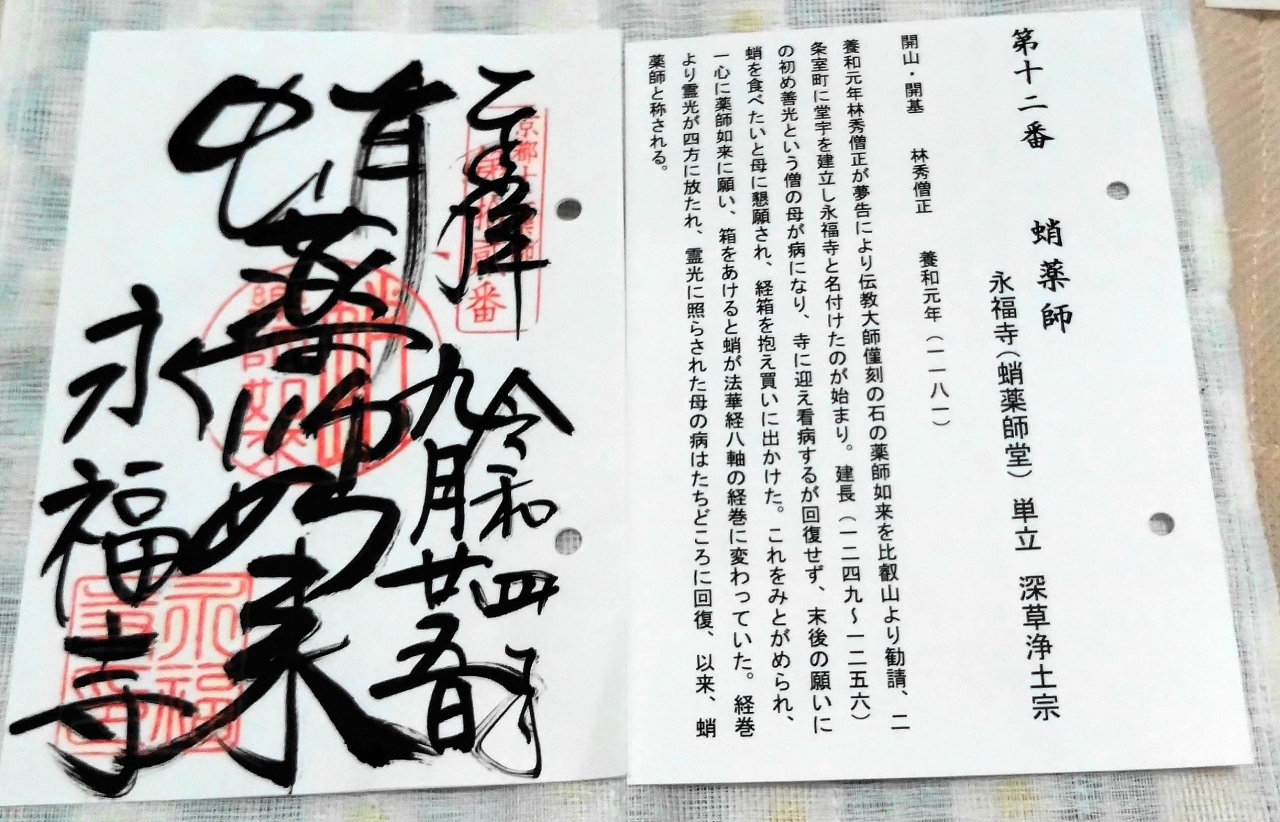 第十二番 蛸薬師
永福寺(蛸薬師堂) 単立 深草浄土宗
開山・開基 林秀僧正 養和元年(一一八一)
養和元年林秀僧正が夢告により伝教大師僅刻の石の薬師如来を比叡山より勧請、二
条室町に堂宇を建立し永福寺と名付けたのが始まり。建長(一二四九～一二五六)
の初め善光という僧の母が病になり、寺に迎え看病するが回復せず、末後の願いに
蛸を食べたいと母に懇願され、経箱を抱え買いに出かけた。これをみとがめられ、
一心に薬師如来に願い、箱をあけると蛸が法華経八軸の経巻に変わっていた。経巻
より霊光が四方に放たれ、霊光に照らされた母の病はたちどころに回復、以来、蛸
薬師と称される。
奉拝
令和四年
九月廿五日
蛸薬師如来
永福寺
永福寺